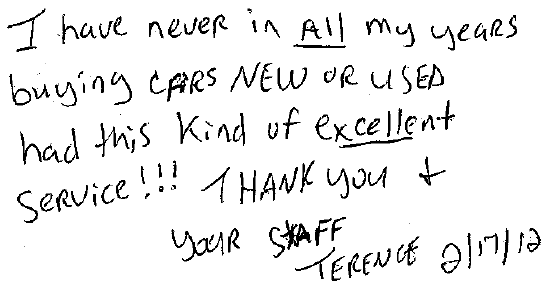 I have never in All my years
buying CARS NEW OR USED
had this kind of excellent
Service!!! THANK you +
your STAFF
TERENCE 2/17/12